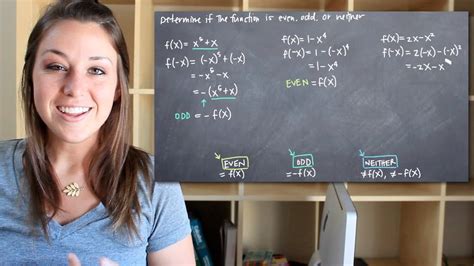 Determine if the function is even, odd, or neither
f(x) = x⁵+x
f(-x) = (-x)⁵+(-x)
= -x⁵-x
= -(x⁵+x)
ODD = -f(x)
f(x) = 1-x⁴
f(-x) = 1-(-x)⁴
= 1-x⁴
EVEN = f(x)
f(x) = 2x-x²
f(-x) = 2(-x)-(-x)²
= -2x-x²
EVEN
= f(x)
ODD
= -f(x)
NEITHER
≠f(x), ≠-f(x)